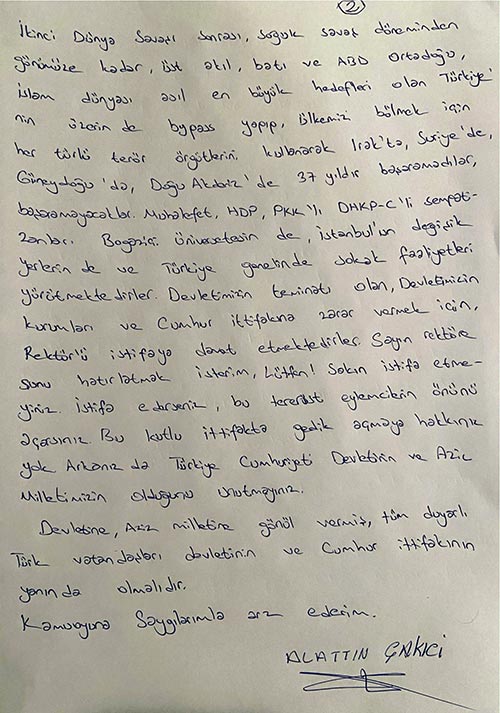 2
İkinci Dünya Savaşı sonrası, soğuk savaş döneminden
günümüze kadar, üst akıl, batı ve ABD Ortadoğu,
İslam dünyası asıl en büyük hedefleri olan Türkiye'
nin üzerin de bypass yapıp, ülkemizi bölmek için
her türlü terör örgütlerini kullanarak Irak'ta, Suriye'de,
Güneydoğu'da, Doğu Akdeniz'de 37 yıldır başaramadılar,
başaramayacaklar. Muhalefet, HDP, PKK'lı, DHKP-C'li sempati-
zanları. Boğaziçi Üniversitesin de, İstanbul'un değişik
yerlerin de ve Türkiye genelinde sokak faaliyetleri
yürütmektedirler. Devletimizin teminatı olan, Devletimizin
kurumları ve Cumhur ittifakına zarar vermek için,
Rektör'ü istifaya davet etmektedirler. Sayın rektöre
şunu hatırlatmak isterim, Lütfen! Sakın istifa etme-
yiniz. İstifa ederseniz, bu terörist eylemcilerin önünü
açarsınız. Bu kutlu ittifakta gedik açmaya hakkınız
yok Arkanız da Türkiye Cumhuriyeti Devletinin ve Aziz
Milletimizin olduğunu unutmayınız.
Devletine, Aziz milletine gönül vermiş, tüm duyarlı
Türk vatandaşları devletinin ve Cumhur ittifakının
yanın da olmalıdır.
Kamuoyuna Saygılarımla arz ederim.
ALATTİN ÇAKICI